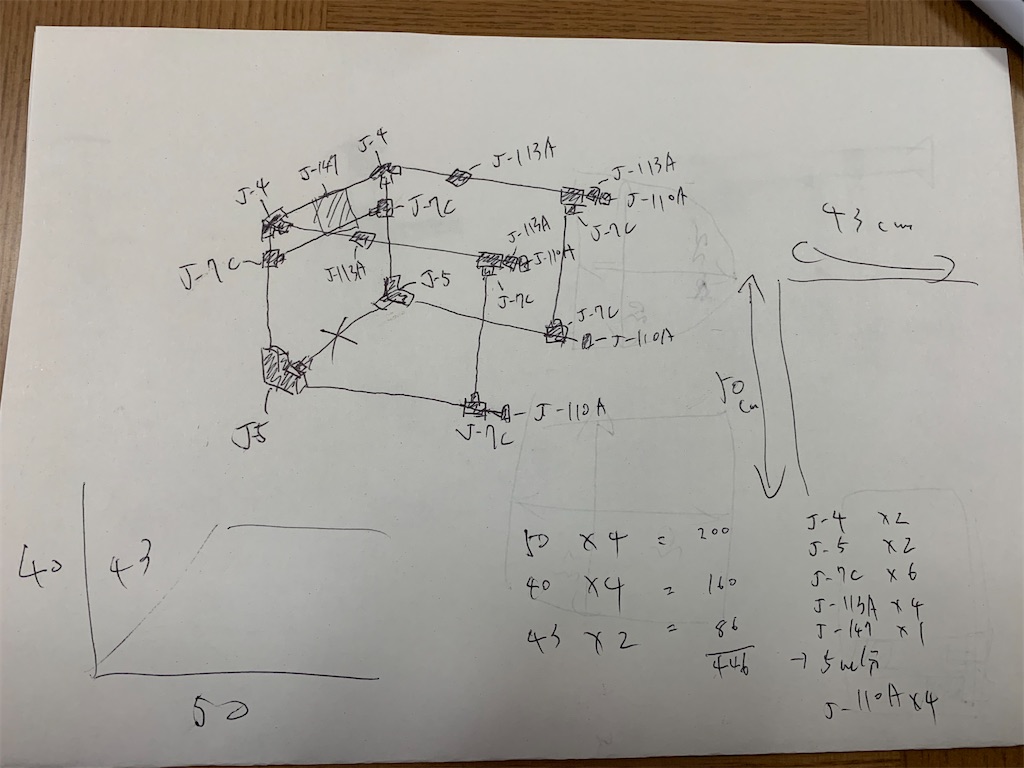 J-4
J-147
J-4
J-113A
J-113A
J-110A
J-7C
J-7C
J-113A
J-110A
J-7C
J-7C
J-113A
J-5
J-7C
J-110A
J-5
J-7C
J-110A
43cm
50cm
40
43
50
50 × 4 = 200
40 × 4 = 160
43 × 2 = 86
446
J-4 ×2
J-5 ×2
J-7C ×6
J-113A ×4
J-147 ×1
→ 5m以下
J-110A×4